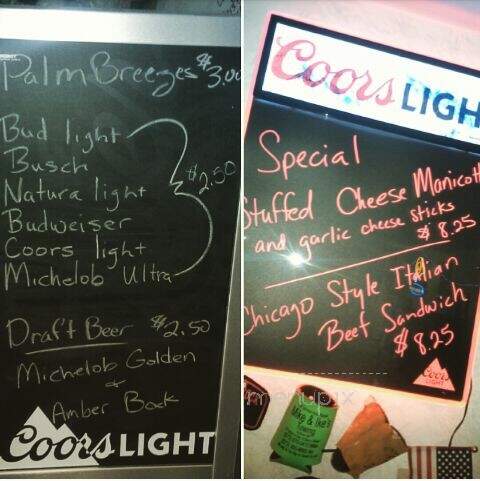 Palm Breezes $3.00
Bud light
Busch
Natura light
Budweiser
Coors light
Michelob Ultra
$2.50
Draft Beer $2.50
Michelob Golden
&
Amber Bock
Coors LIGHT
Coors LIGH
Special
Stuffed Cheese Manicott
and garlic cheese sticks
$8.25
Chicago Style Italian
Beef Sandwich
$8.25
Coors
LIGHT
Mike & Ike's
menupix